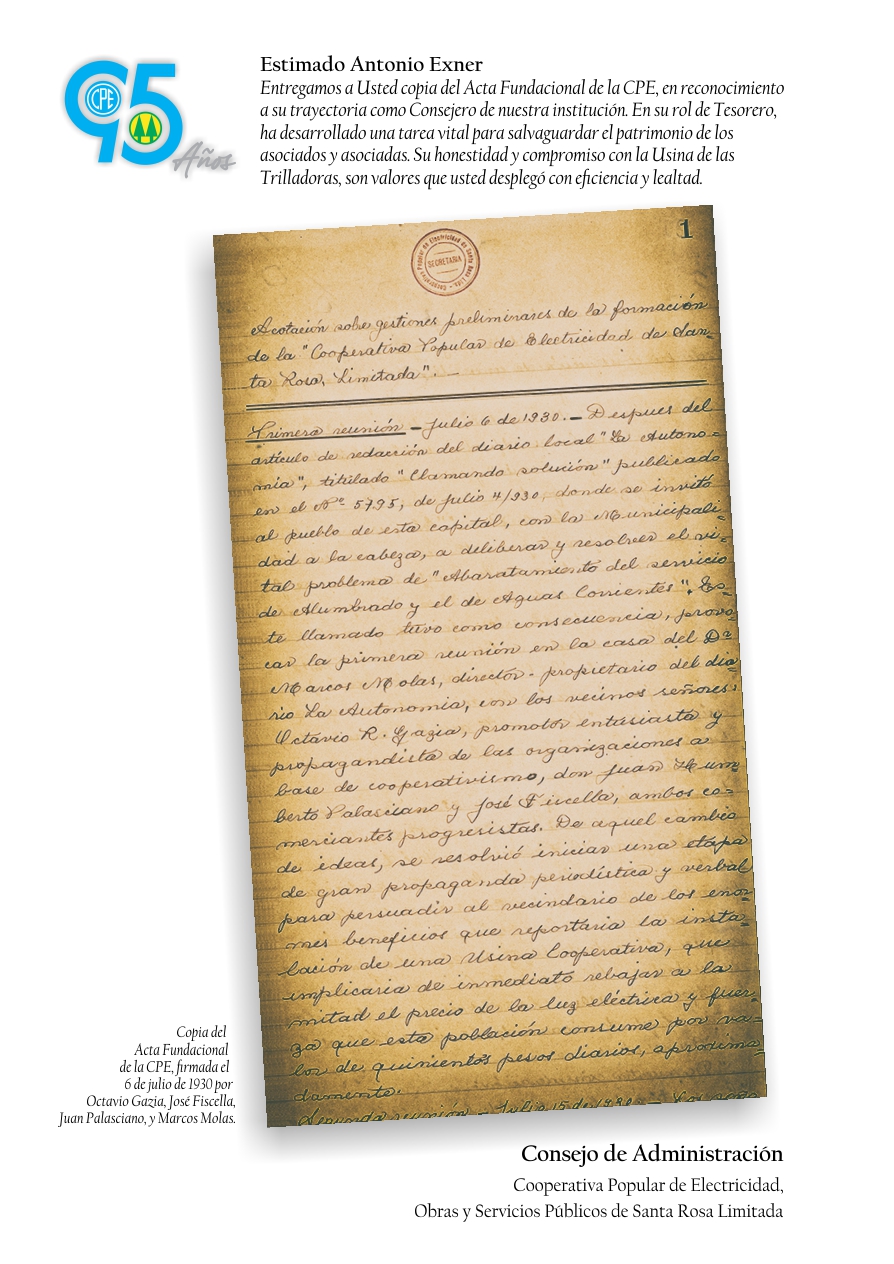 Estimado Antonio Exner
Entregamos a Usted copia del Acta Fundacional de la CPE, en reconocimiento
a su trayectoria como Consejero de nuestra institución. En su rol de Tesorero,
ha desarrollado una tarea vital para salvaguardar el patrimonio de los
asociados y asociadas. Su honestidad y compromiso con la Usina de las
Trilladoras, son valores que usted desplegó con eficiencia y lealtad.
95
CPE
Años
1
Cooperativa Popular de Electricidad de Santa Rosa Ltda.
SECRETARIA
Acotación sobre gestiones preliminares de la formación
de la "Cooperativa Popular de Electricidad de San-
ta Rosa, Limitada". —
Primera reunión - Julio 6 de 1930. - Despues del
artículo de redacción del diario local "La Autono-
mía", titulado "Clamando solución" publicado
en el Nº 5795, de julio 4/930, donde se invitó
al pueblo de esta capital, con la Municipali-
dad a la cabeza, a deliberar y resolver el vi-
tal problema de "Abaratamiento del servicio
de Alumbrado y el de Aguas Corrientes". Es-
te llamado tuvo como consecuencia, provo-
car la primera reunión en la casa del Dr.
Marcos Molas, director-propietario del dia-
rio La Autonomia, con los vecinos señores:
Octavio R. Gazia, promotor entusiasta y
propagandista de las organizaciones a
base de cooperativismo, don Juan Hum-
berto Palasciano y José Fiscella, ambos co-
merciantes progresistas. De aquel cambio
de ideas, se resolvió iniciar una etapa
de gran propaganda periodística y verbal
para persuadir al vecindario de los enor-
mes beneficios que reportaria la insta-
lación de una Usina Cooperativa, que
implicaria de inmediato rebajar a la
mitad el precio de la luz eléctrica y fuer-
za que esta población consume por va-
lor de quinientos pesos diarios, aproxima-
damente.
Segunda reunión - Julio 15 de 1930 -
Copia del
Acta Fundacional
de la CPE, firmada el
6 de julio de 1930 por
Octavio Gazia, José Fiscella,
Juan Palasciano, y Marcos Molas.
Consejo de Administración
Cooperativa Popular de Electricidad,
Obras y Servicios Públicos de Santa Rosa Limitada